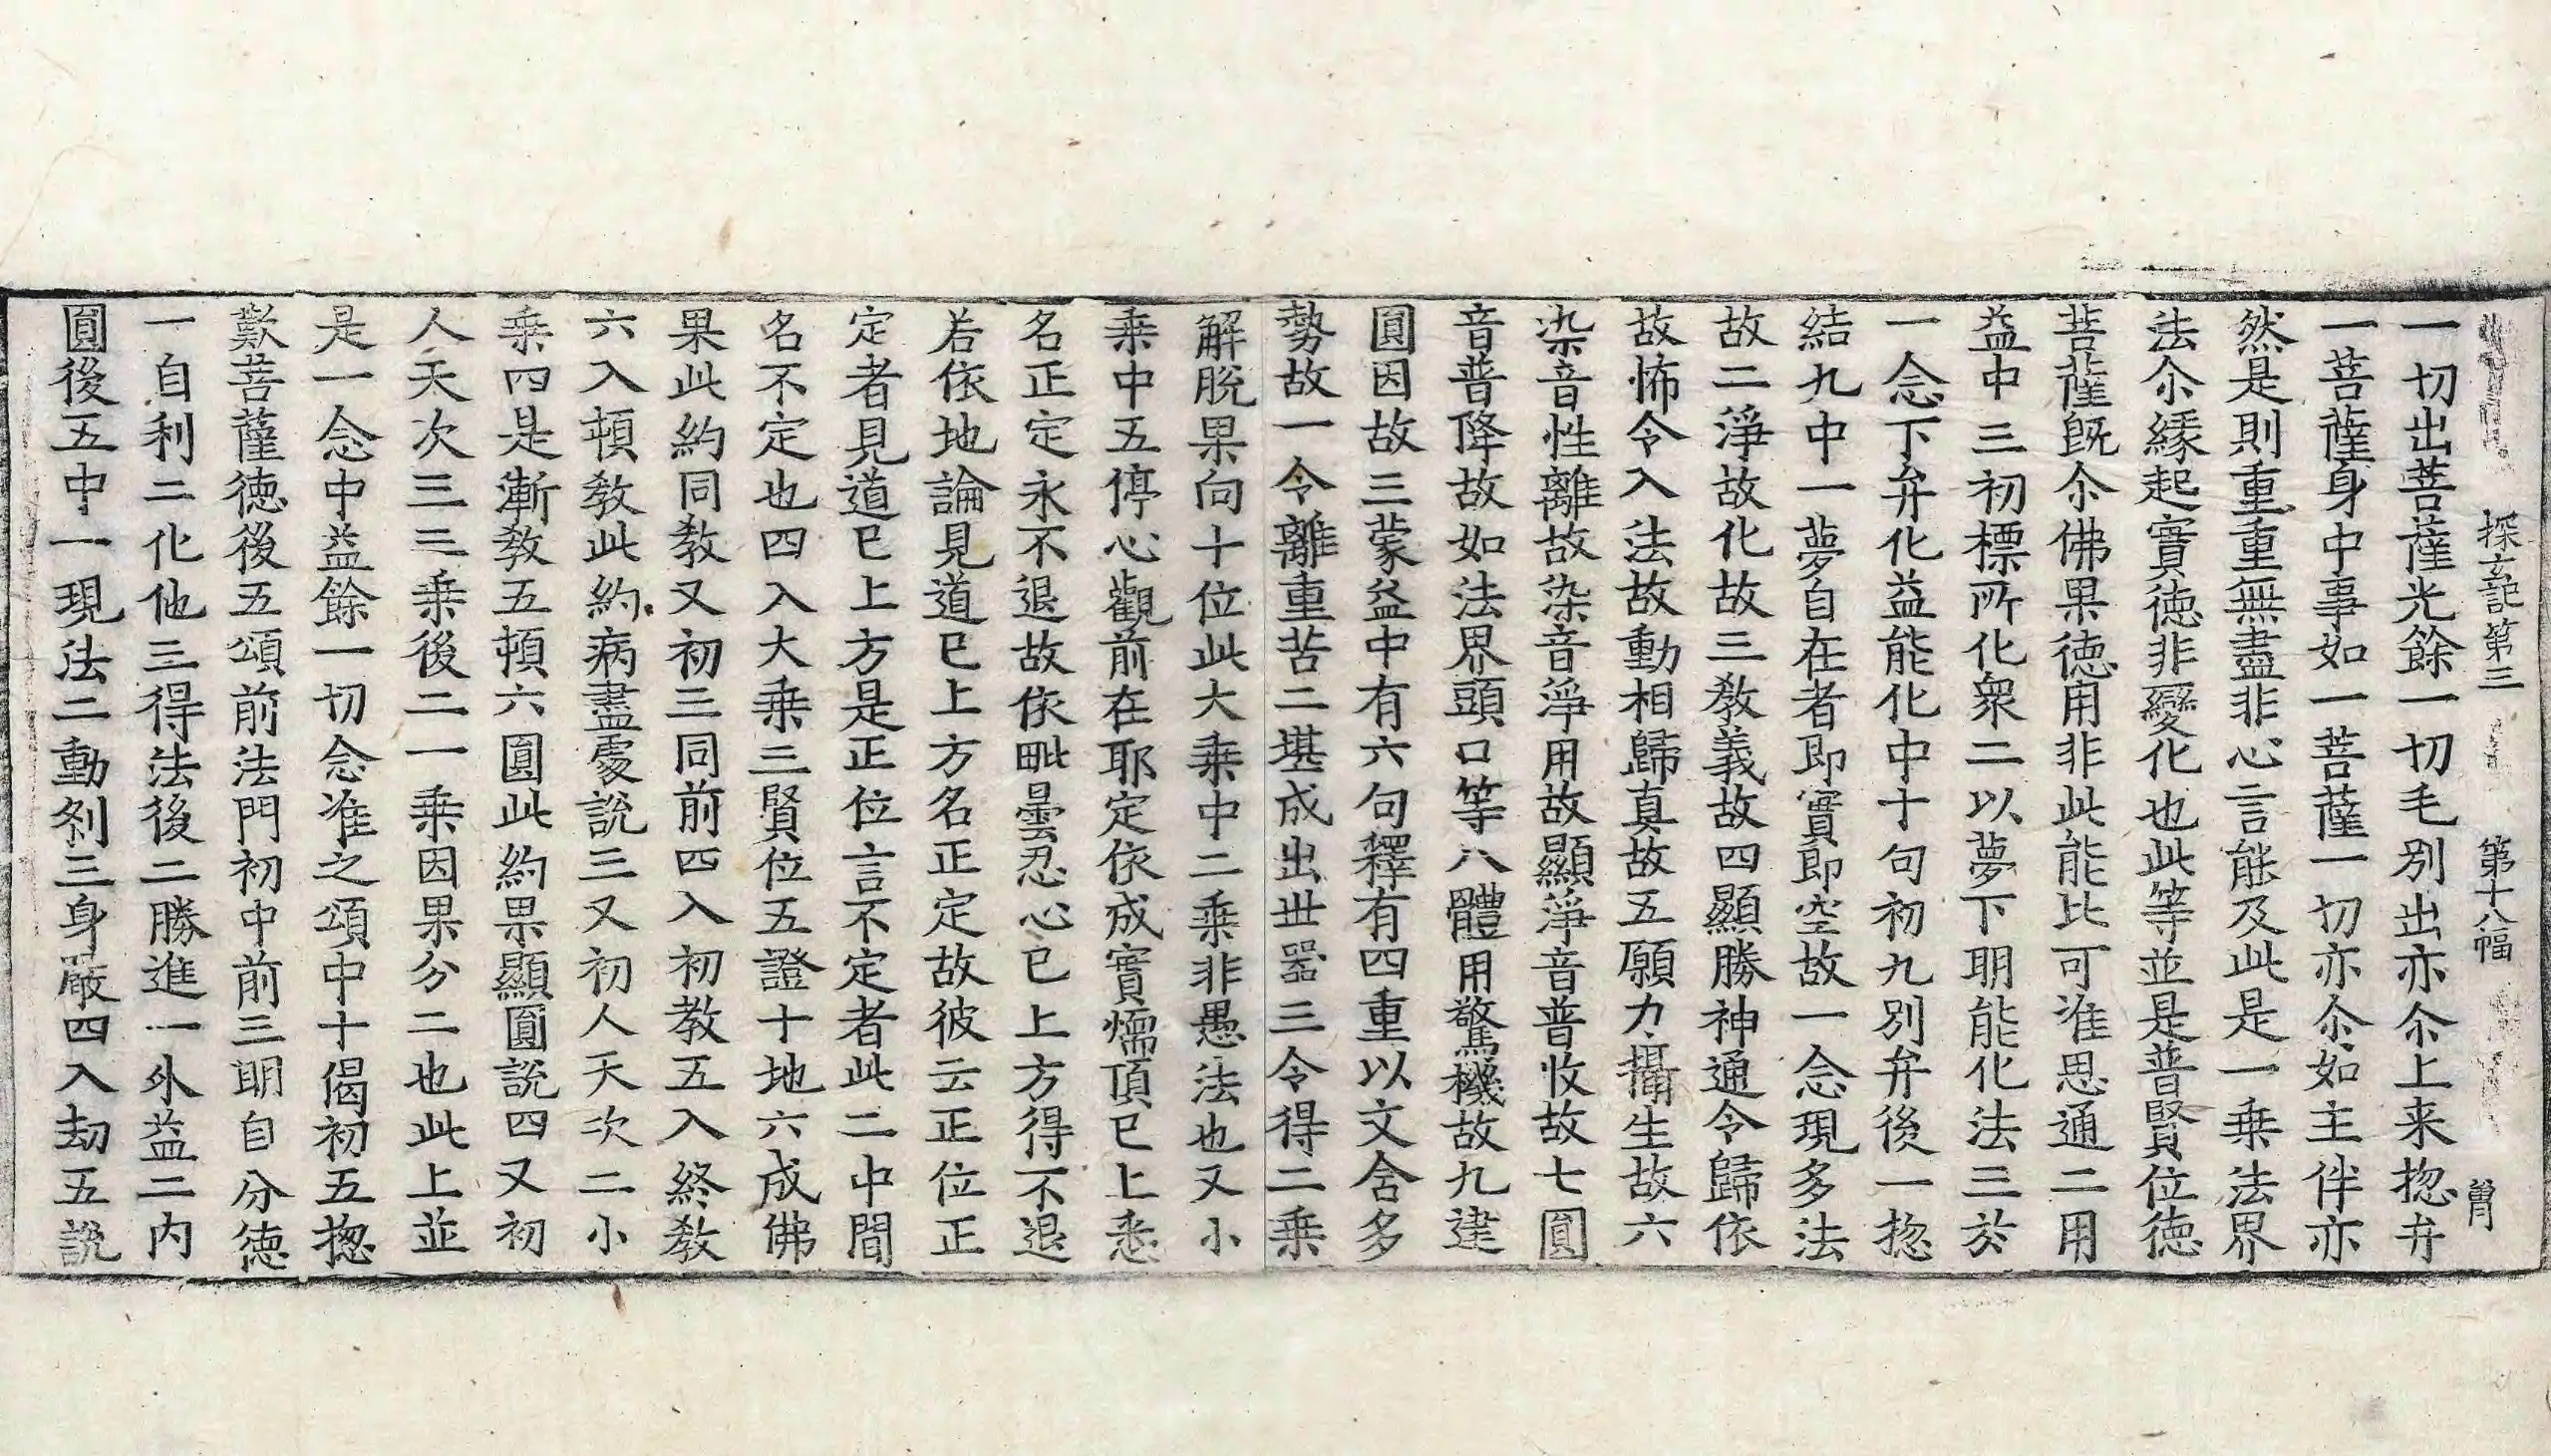 探玄記第三 第十八幅
一切出菩薩光餘一切毛別出亦尒上来揔弁
一菩薩身中事如一菩薩一切亦尒如主伴亦
然是則重重無盡非心言能及此是一乗法界
法尒縁起實徳非變化也此等並是普賢位徳
菩薩既尒佛果徳用非此能比可准思通二用
益中三初標所化衆二以夢下明能化法三於
一念下弁化益能化中十句初九別弁後一揔
結九中一夢自在者即實即空故一念現多法
故二淨故化故三教義故四顯勝神通令歸依
故怖令入法故動相歸真故五願力攝生故六
染音性離故染音淨用故顯淨音普收故七圓
音普降故如法界頭口等八體用驚機故九建
圓因故三蒙益中有六句釋有四重以文含多
勢故一令離重苦二堪成出世器三令得二乗
解脫果向十位此大乗中二乗非愚法也又小
乗中五停心觀前在耶定依成實煗頂已上悉
名正定永不退故依毗曇忍心已上方得不退
若依地論見道已上方名正定故彼云正位正
定者見道已上方是正位言不定者此二中間
名不定也四入大乗三賢位五證十地六成佛
果此約同教又初三同前四入初教五入終教
六入頓教此約病盡處說三又初人天次二小
乗四是漸教五頓六圓此約果顯圓說四又初
人天次三三乗後二一乗因果分二也此上並
是一念中益餘一切念准之頌中十偈初五揔
歎菩薩徳後五頌前法門初中前三明自分徳
一自利二化他三得法後二勝進一外益二内
圓後五中一現法二動刹三身嚴四入劫五說